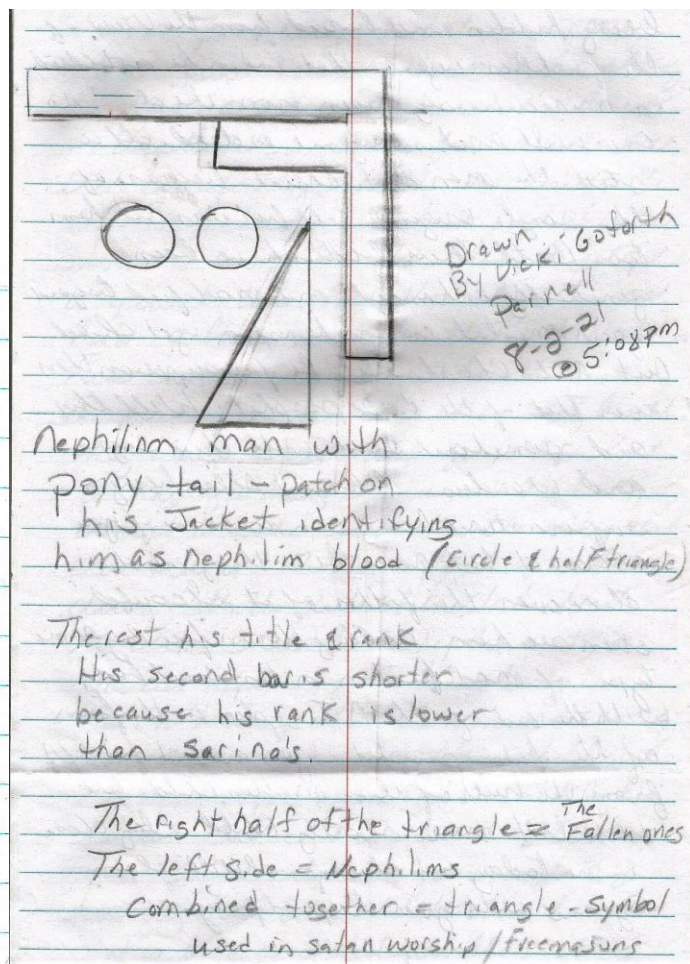 Drawn
By Vicki Goforth
Parnell
8-2-21
@ 5:08 pm
nephilim man with
pony tail - patch on
his Jacket identifying
him as nephilim blood (circle & half triangle)
The rest his title & rank
His second bar is shorter
because his rank is lower
than Sarina's.
The right half of the triangle = The Fallen ones
The left side = Nephilims
Combined together = triangle - symbol
used in satan worship / freemasons